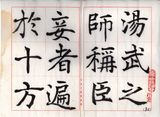 湯武之
師稱臣
妾者遍
於十方